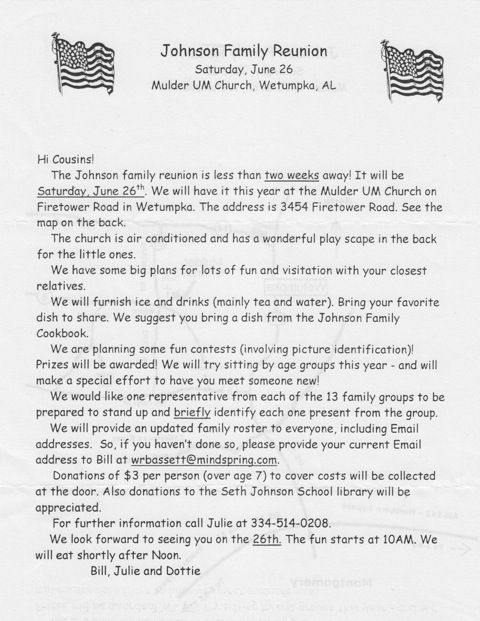 Johnson Family Reunion
Saturday, June 26
Mulder UM Church, Wetumpka, AL
Hi Cousins!
The Johnson family reunion is less than two weeks away! It will be
Saturday, June 26th. We will have it this year at the Mulder UM Church on
Firetower Road in Wetumpka. The address is 3454 Firetower Road. See the
map on the back.
The church is air conditioned and has a wonderful play scape in the back
for the little ones.
We have some big plans for lots of fun and visitation with your closest
relatives.
We will furnish ice and drinks (mainly tea and water). Bring your favorite
dish to share. We suggest you bring a dish from the Johnson Family
Cookbook.
We are planning some fun contests (involving picture identification)!
Prizes will be awarded! We will try sitting by age groups this year - and will
make a special effort to have you meet someone new!
We would like one representative from each of the 13 family groups to be
prepared to stand up and briefly identify each one present from the group.
We will provide an updated family roster to everyone, including Email
addresses. So, if you haven't done so, please provide your current Email
address to Bill at wrbassett@mindspring.com.
Donations of $3 per person (over age 7) to cover costs will be collected
at the door. Also donations to the Seth Johnson School library will be
appreciated.
For further information call Julie at 334-514-0208.
We look forward to seeing you on the 26th. The fun starts at 10AM. We
will eat shortly after Noon.
Bill, Julie and Dottie
Montgomery